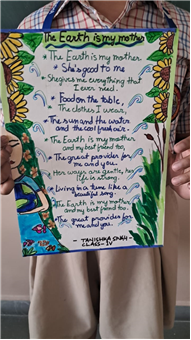 The Earth is my mother
* The Earth is my mother
* She's good to me
* She gives me everything that
I ever need.
* Food on the table,
The clothes I wear,
* The sun and the water
and the cool fresh air.
* The Earth is my mother
and my best friend too,
* The great provider for
me and you.
* Her ways are gentle, her
life is strong.
* Living in a tune like a
beautiful song.
* The Earth is my mother
and my best friend too.
* The great provider for
me and you.
- TANISHKA
CLASS - IV